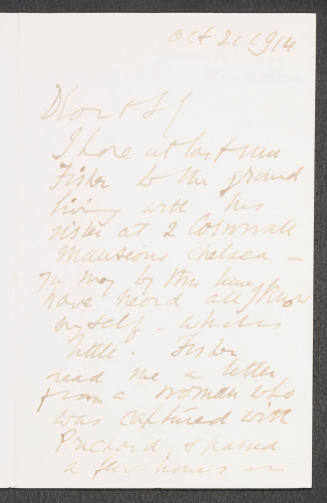 Oct 21 1914
Dear
I have at last run
Fisher to the ground
living with his
sister at 2 Cornwall
Mansions Chelsea —
you may by this time
have heard all I know
myself — which is
little. Fisher
read me a letter
from a woman who
was captured with
& passed
a few hours in